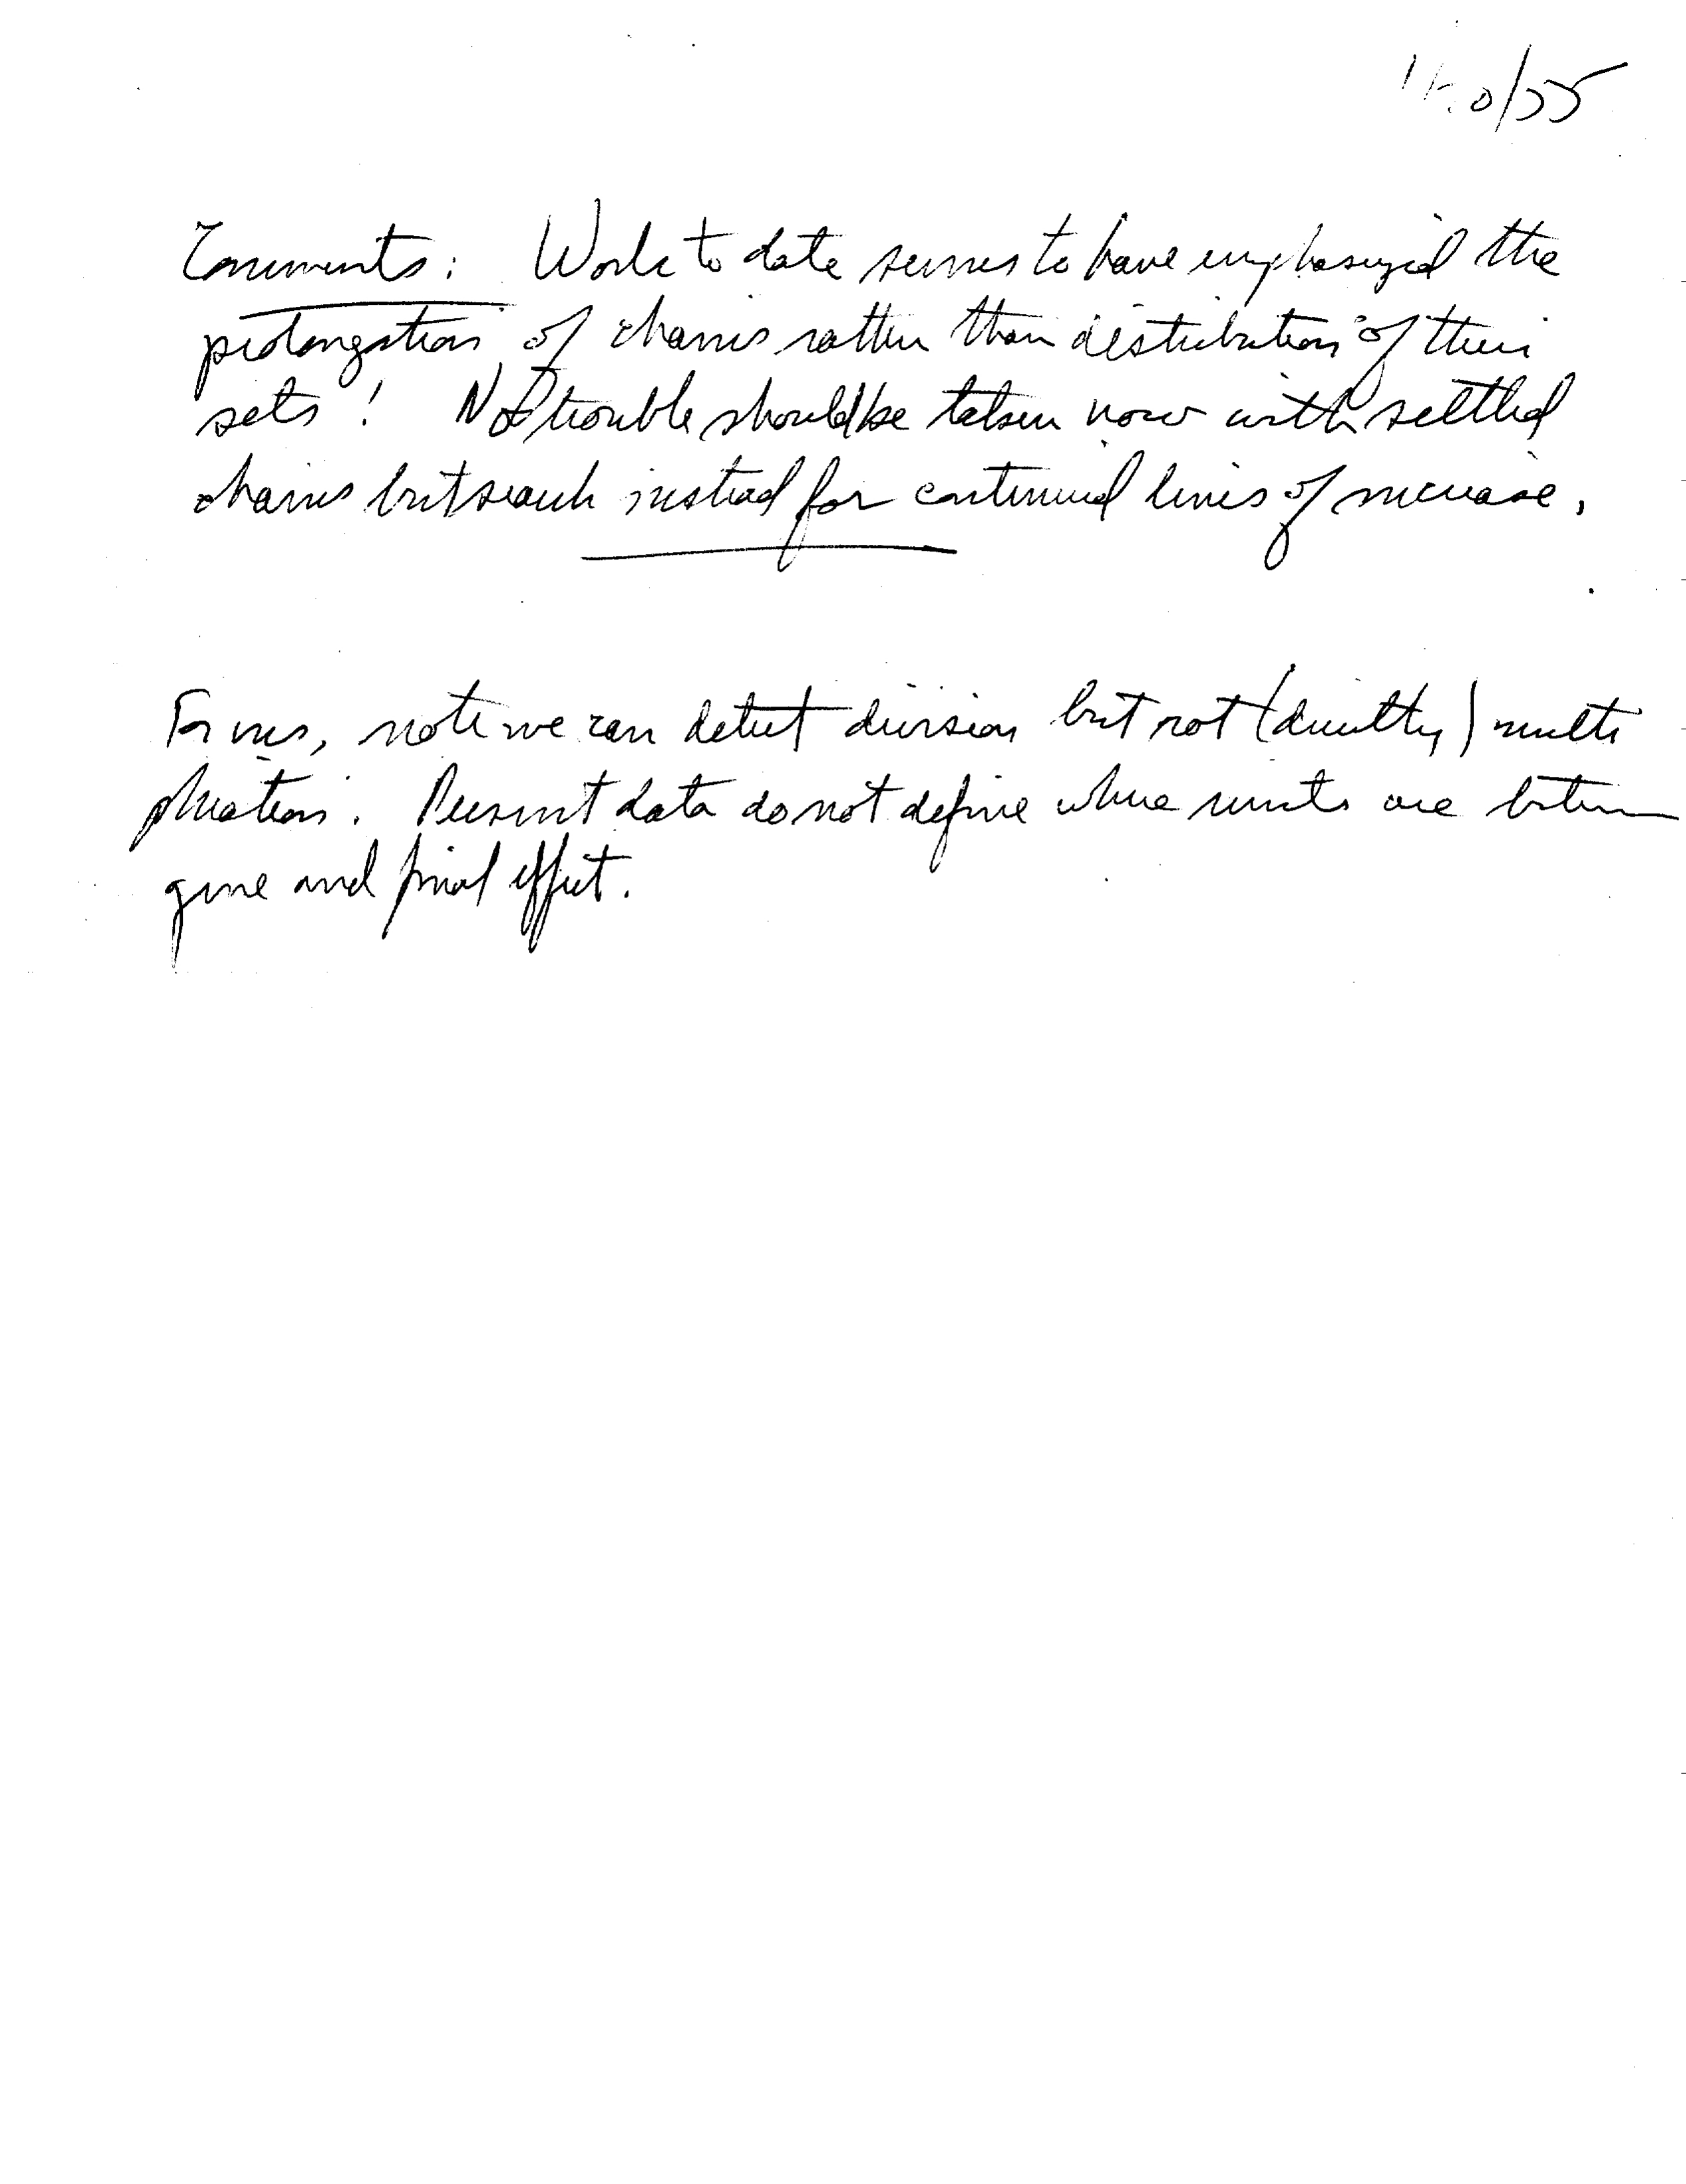 Comments: Work to date seems to have emphasized the
prolongation of chains rather than distribution of their
sets! Not trouble should be taken now with settled
chains but search instead for continued lines of increase.
note we can detect division but not (directly) multi
plication. Present data do not define where units are betwn
gene and final effect.